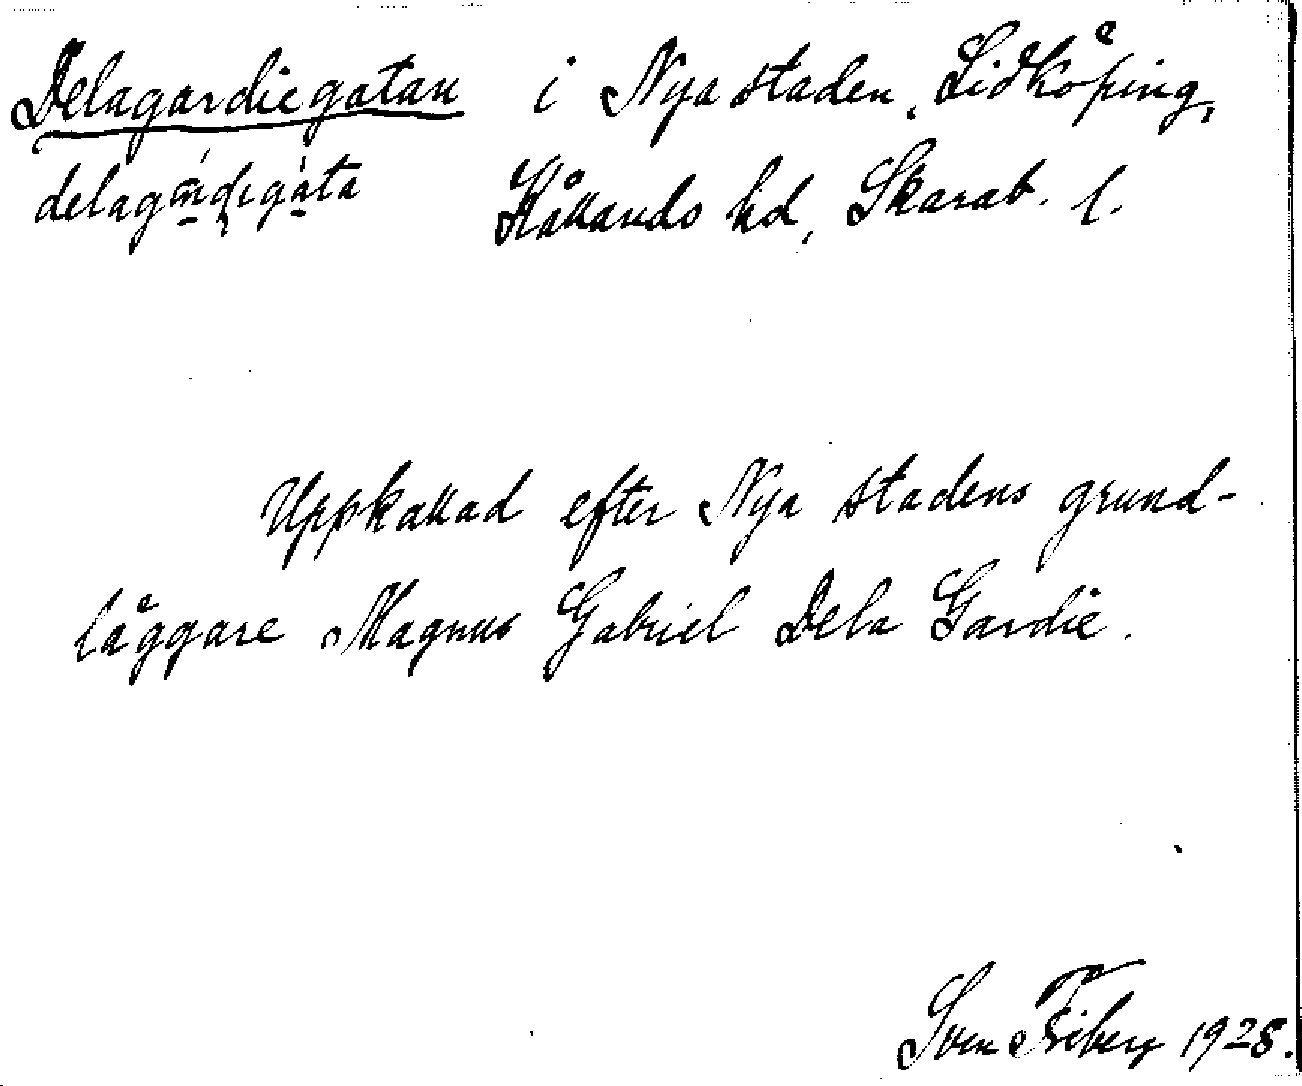 Delagardiegatan i Nya staden, Lidköping,
Kållands hd, Skarab. l.
Uppkallad efter Nya stadens grund-
läggare Magnus Gabriel Dela Gardie.
Sven Friberg 1928.